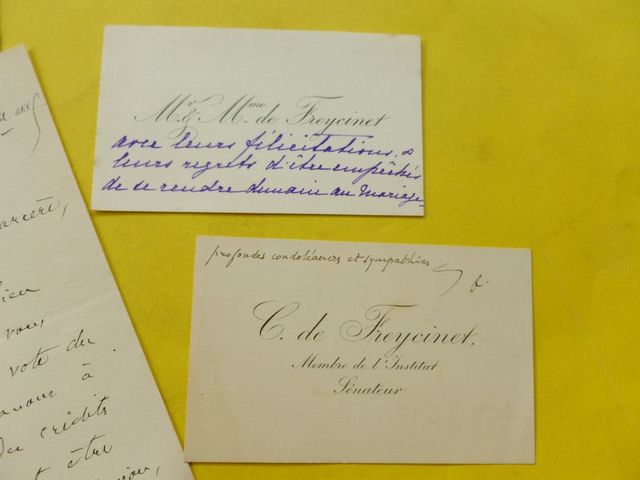 Mr & Mme de Freycinet
avec leurs félicitations, &
leurs regrets d'être empêchés
de se rendre demain au mariage
profondes condoléances et sympathies
f.
C. de Freycinet.
Membre de l'Institut
Sénateur
vous
vote du
à
crédits
être